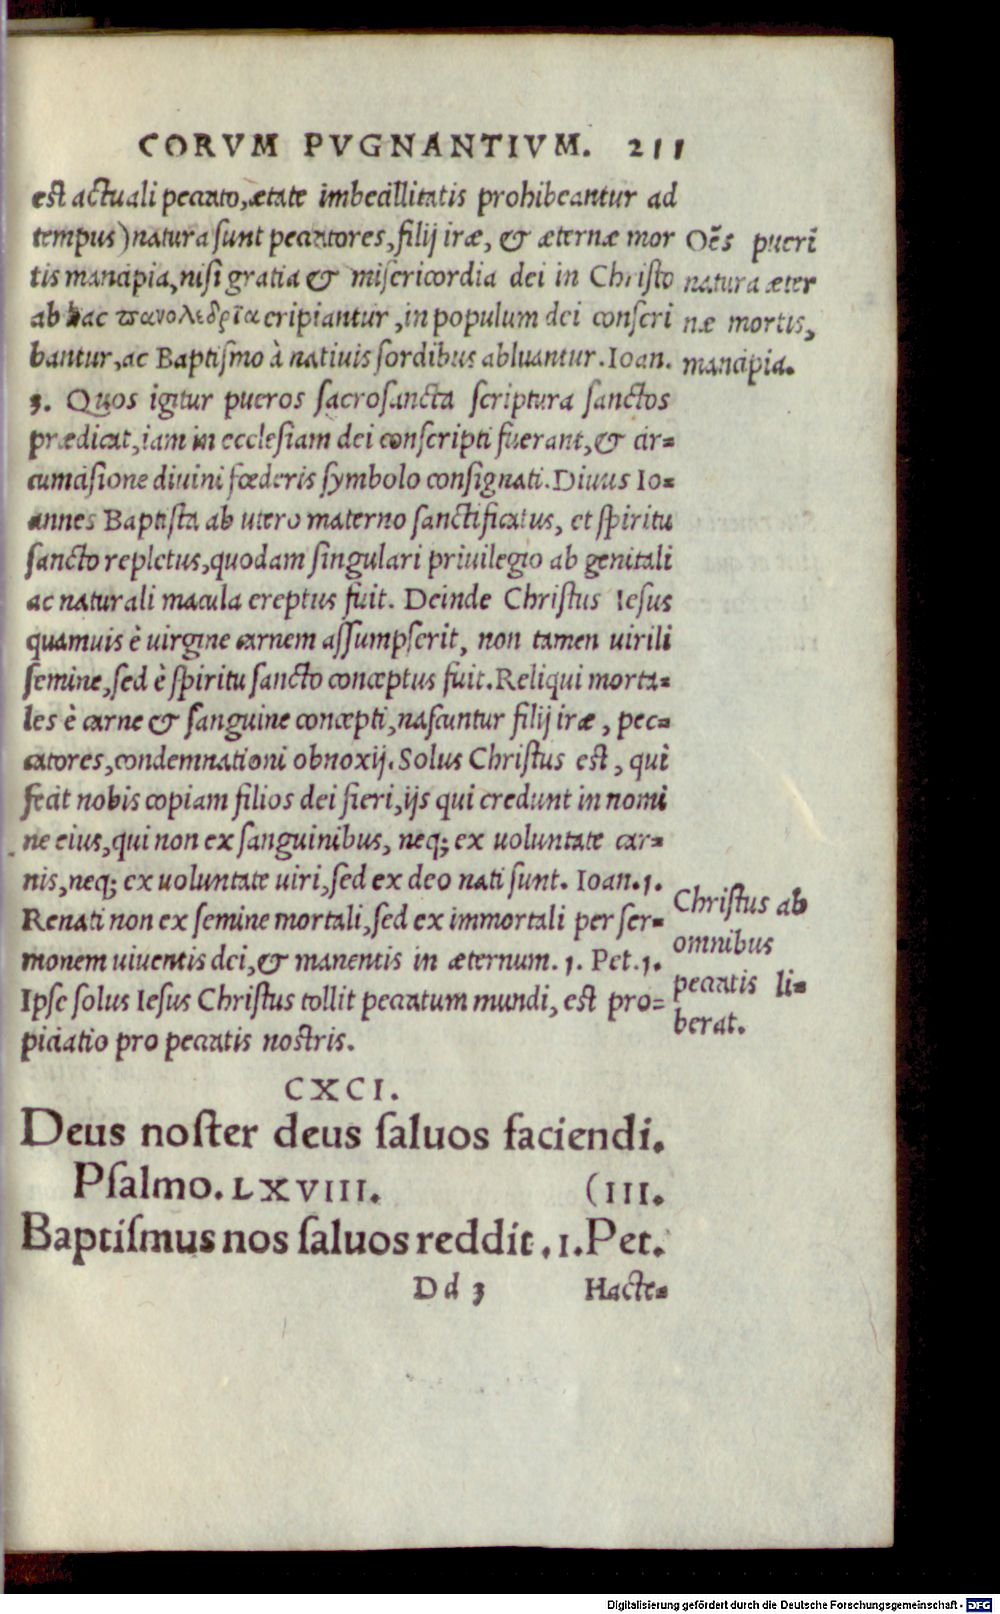 CORVM PVGNANTIVM. 211
est actuali peccato, ætate imbecillitatis prohibeantur ad
tempus) natura sunt peccatores, filij iræ, & æternæ mor
tis mancipia, nisi gratia & misericordia dei in Christo
ab hac πανολεδρία eripiantur, in populum dei conscri
bantur, ac Baptismo à natiuis sordibus abluantur. Ioan.
3. Quos igitur pueros sacrosancta scriptura sanctos
prædicat, iam in ecclesiam dei conscripti fuerant, & cir=
cumcisione diuini fœderis symbolo consignati. Diuus Io=
annes Baptista ab utero materno sanctificatus, et spiritu
sancto repletus, quodam singulari priuilegio ab genitali
ac naturali macula ereptus fuit. Deinde Christus Iesus
quamuis è uirgine carnem assumpserit, non tamen uirili
semine, sed è spiritu sancto conceptus fuit. Reliqui morta=
les è carne & sanguine concepti, nascuntur filij iræ, pec=
catores, condemnationi obnoxij. Solus Christus est, qui
fecit nobis copiam filios dei fieri, ijs qui credunt in nomi
ne eius, qui non ex sanguinibus, neq; ex uoluntate car=
nis, neq; ex uoluntate uiri, sed ex deo nati sunt. Ioan. 1.
Renati non ex semine mortali, sed ex immortali per ser=
monem uiuentis dei, & manentis in æternum. 1. Pet. 1.
Ipse solus Iesus Christus tollit peccatum mundi, est pro=
piciatio pro peccatis nostris.
Oēs puerī
natura æter
næ mortis,
mancipia.
Christus ab
omnibus
peccatis li=
berat.
CXCI.
Deus noster deus saluos faciendi.
Psalmo. LXVIII. (III.
Baptismus nos saluos reddit. 1. Pet.
Dd 3 Hacte=
Digitalisierung gefördert durch die Deutsche Forschungsgemeinschaft - DFG